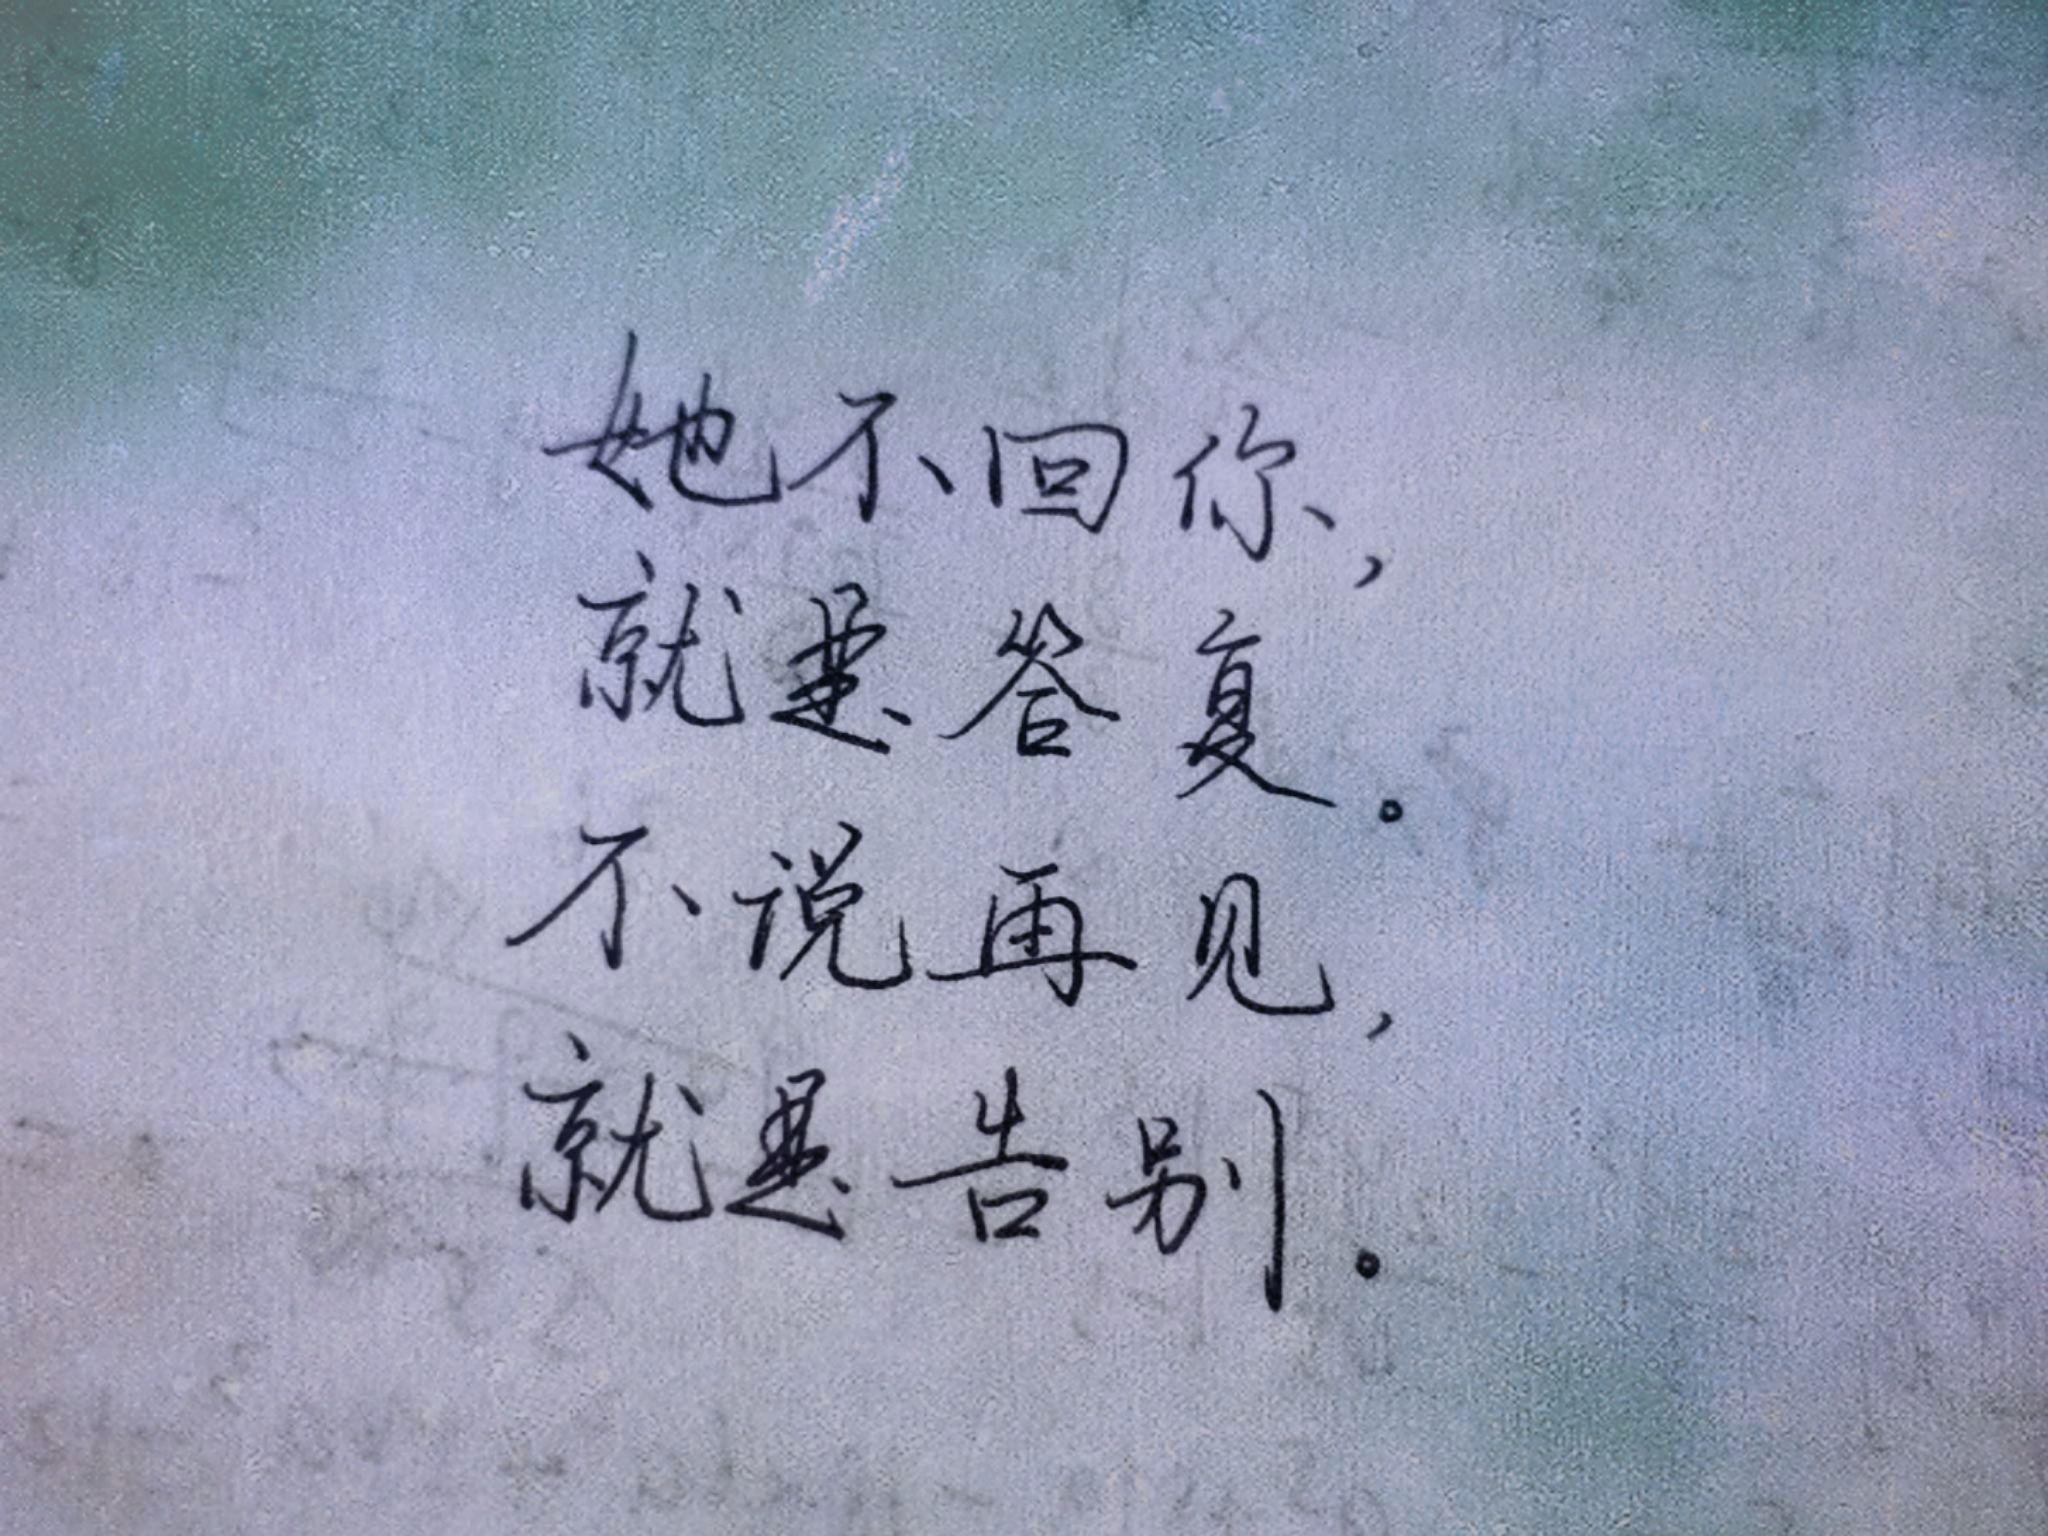 她不回你，
就是答复。
不说再见，
就是告别。